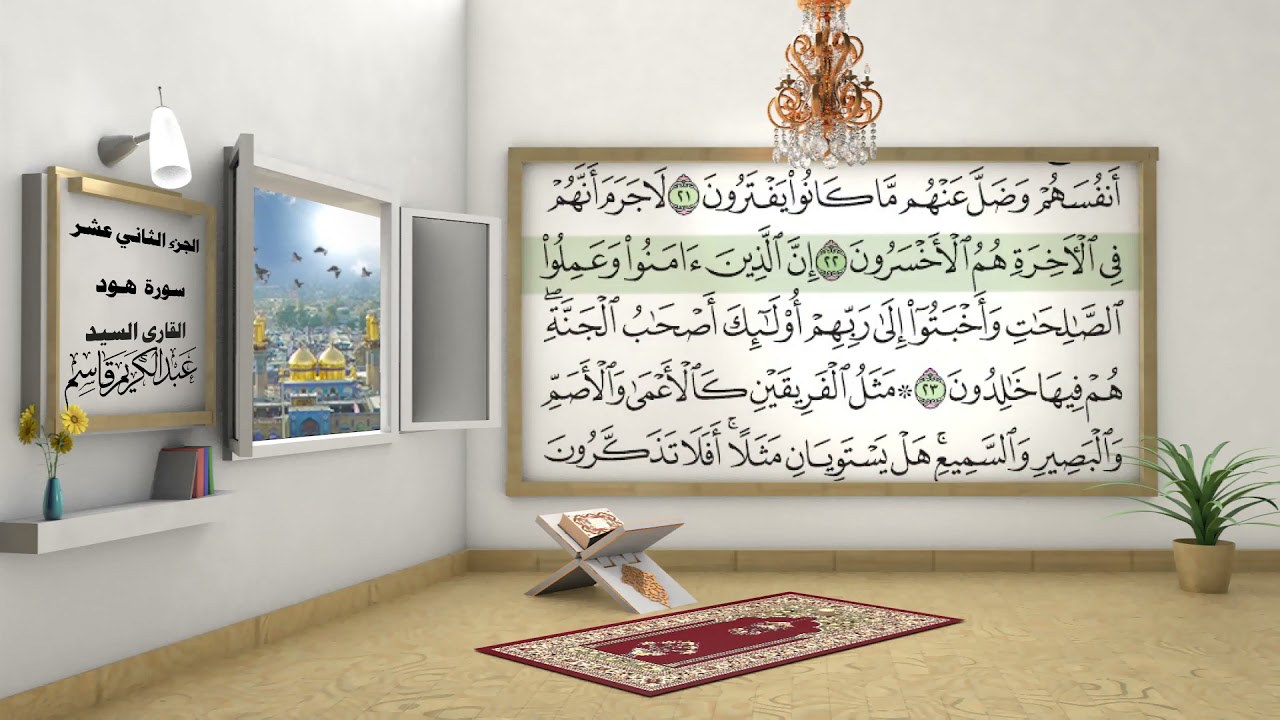 الجزء الثاني عشر
سورة هود
القارئ السيد
عبد الكريم قاسم
أَنفُسَهُمْ وَضَلَّ عَنْهُم مَّا كَانُوا۟ يَفْتَرُونَ ٢١ لَا جَرَمَ أَنَّهُمْ
فِى ٱلْـَٔاخِرَةِ هُمُ ٱلْأَخْسَرُونَ ٢٢ إِنَّ ٱلَّذِينَ ءَامَنُوا۟ وَعَمِلُوا۟
ٱلصَّـٰلِحَـٰتِ وَأَخْبَتُوٓا۟ إِلَىٰ رَبِّهِمْ أُو۟لَـٰٓئِكَ أَصْحَـٰبُ ٱلْجَنَّةِ ۖ
هُمْ فِيهَا خَـٰلِدُونَ ٢٣ ۞ مَثَلُ ٱلْفَرِيقَيْنِ كَٱلْأَعْمَىٰ وَٱلْأَصَمِّ
وَٱلْبَصِيرِ وَٱلسَّمِيعِ ۚ هَلْ يَسْتَوِيَانِ مَثَلًا ۚ أَفَلَا تَذَكَّرُونَ